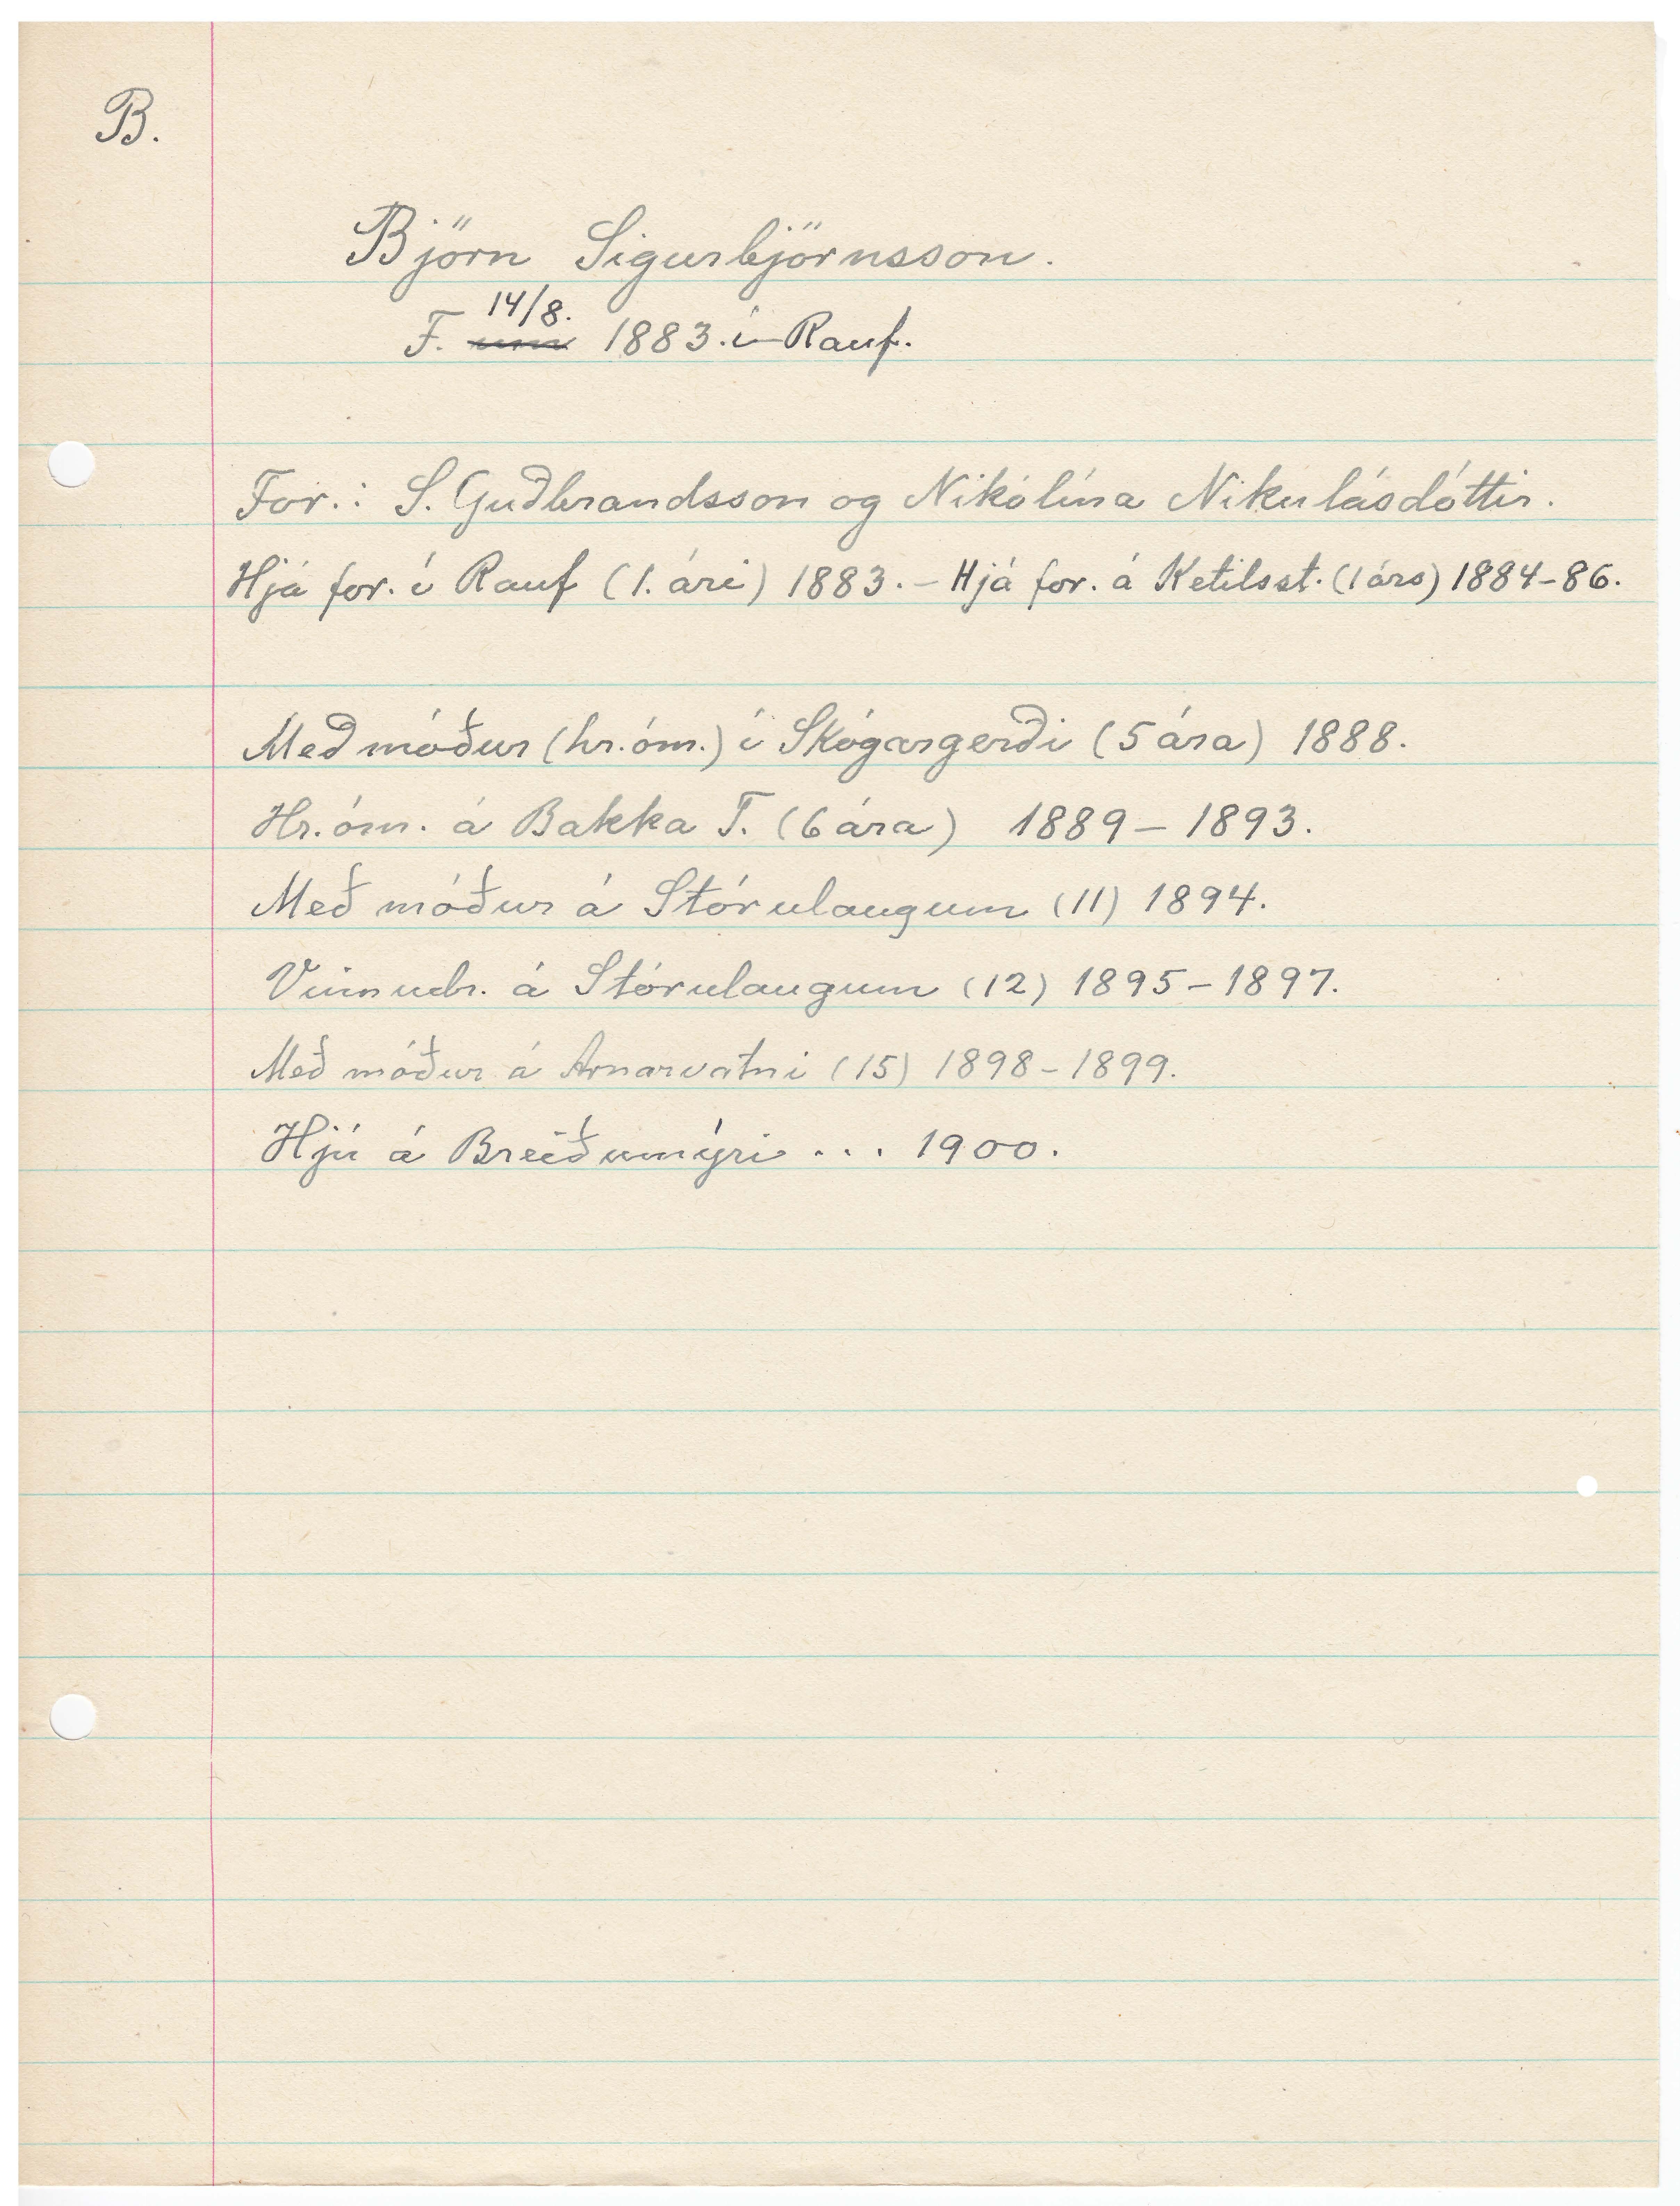 B.
Björn Sigurbjörnsson.
14/8.
F. um 1883. í Rauf.
For.: S. Guðbrandsson og Nikólína Nikulásdóttir.
Hjá for. í Rauf (1. ári) 1883. – Hjá for. á Ketilsst. (1 árs) 1884–86.
Með móður (hr.óm.) í Skógargerði (5 ára) 1888.
Hr.óm. á Bakka T. (6 ára) 1889 – 1893.
Með móður á Stórulaugum (11) 1894.
Vinnudr. á Stórulaugum (12) 1895 – 1897.
Með móður á Arnarvatni (15) 1898 – 1899.
Hjú á Breiðumýri . . . 1900.